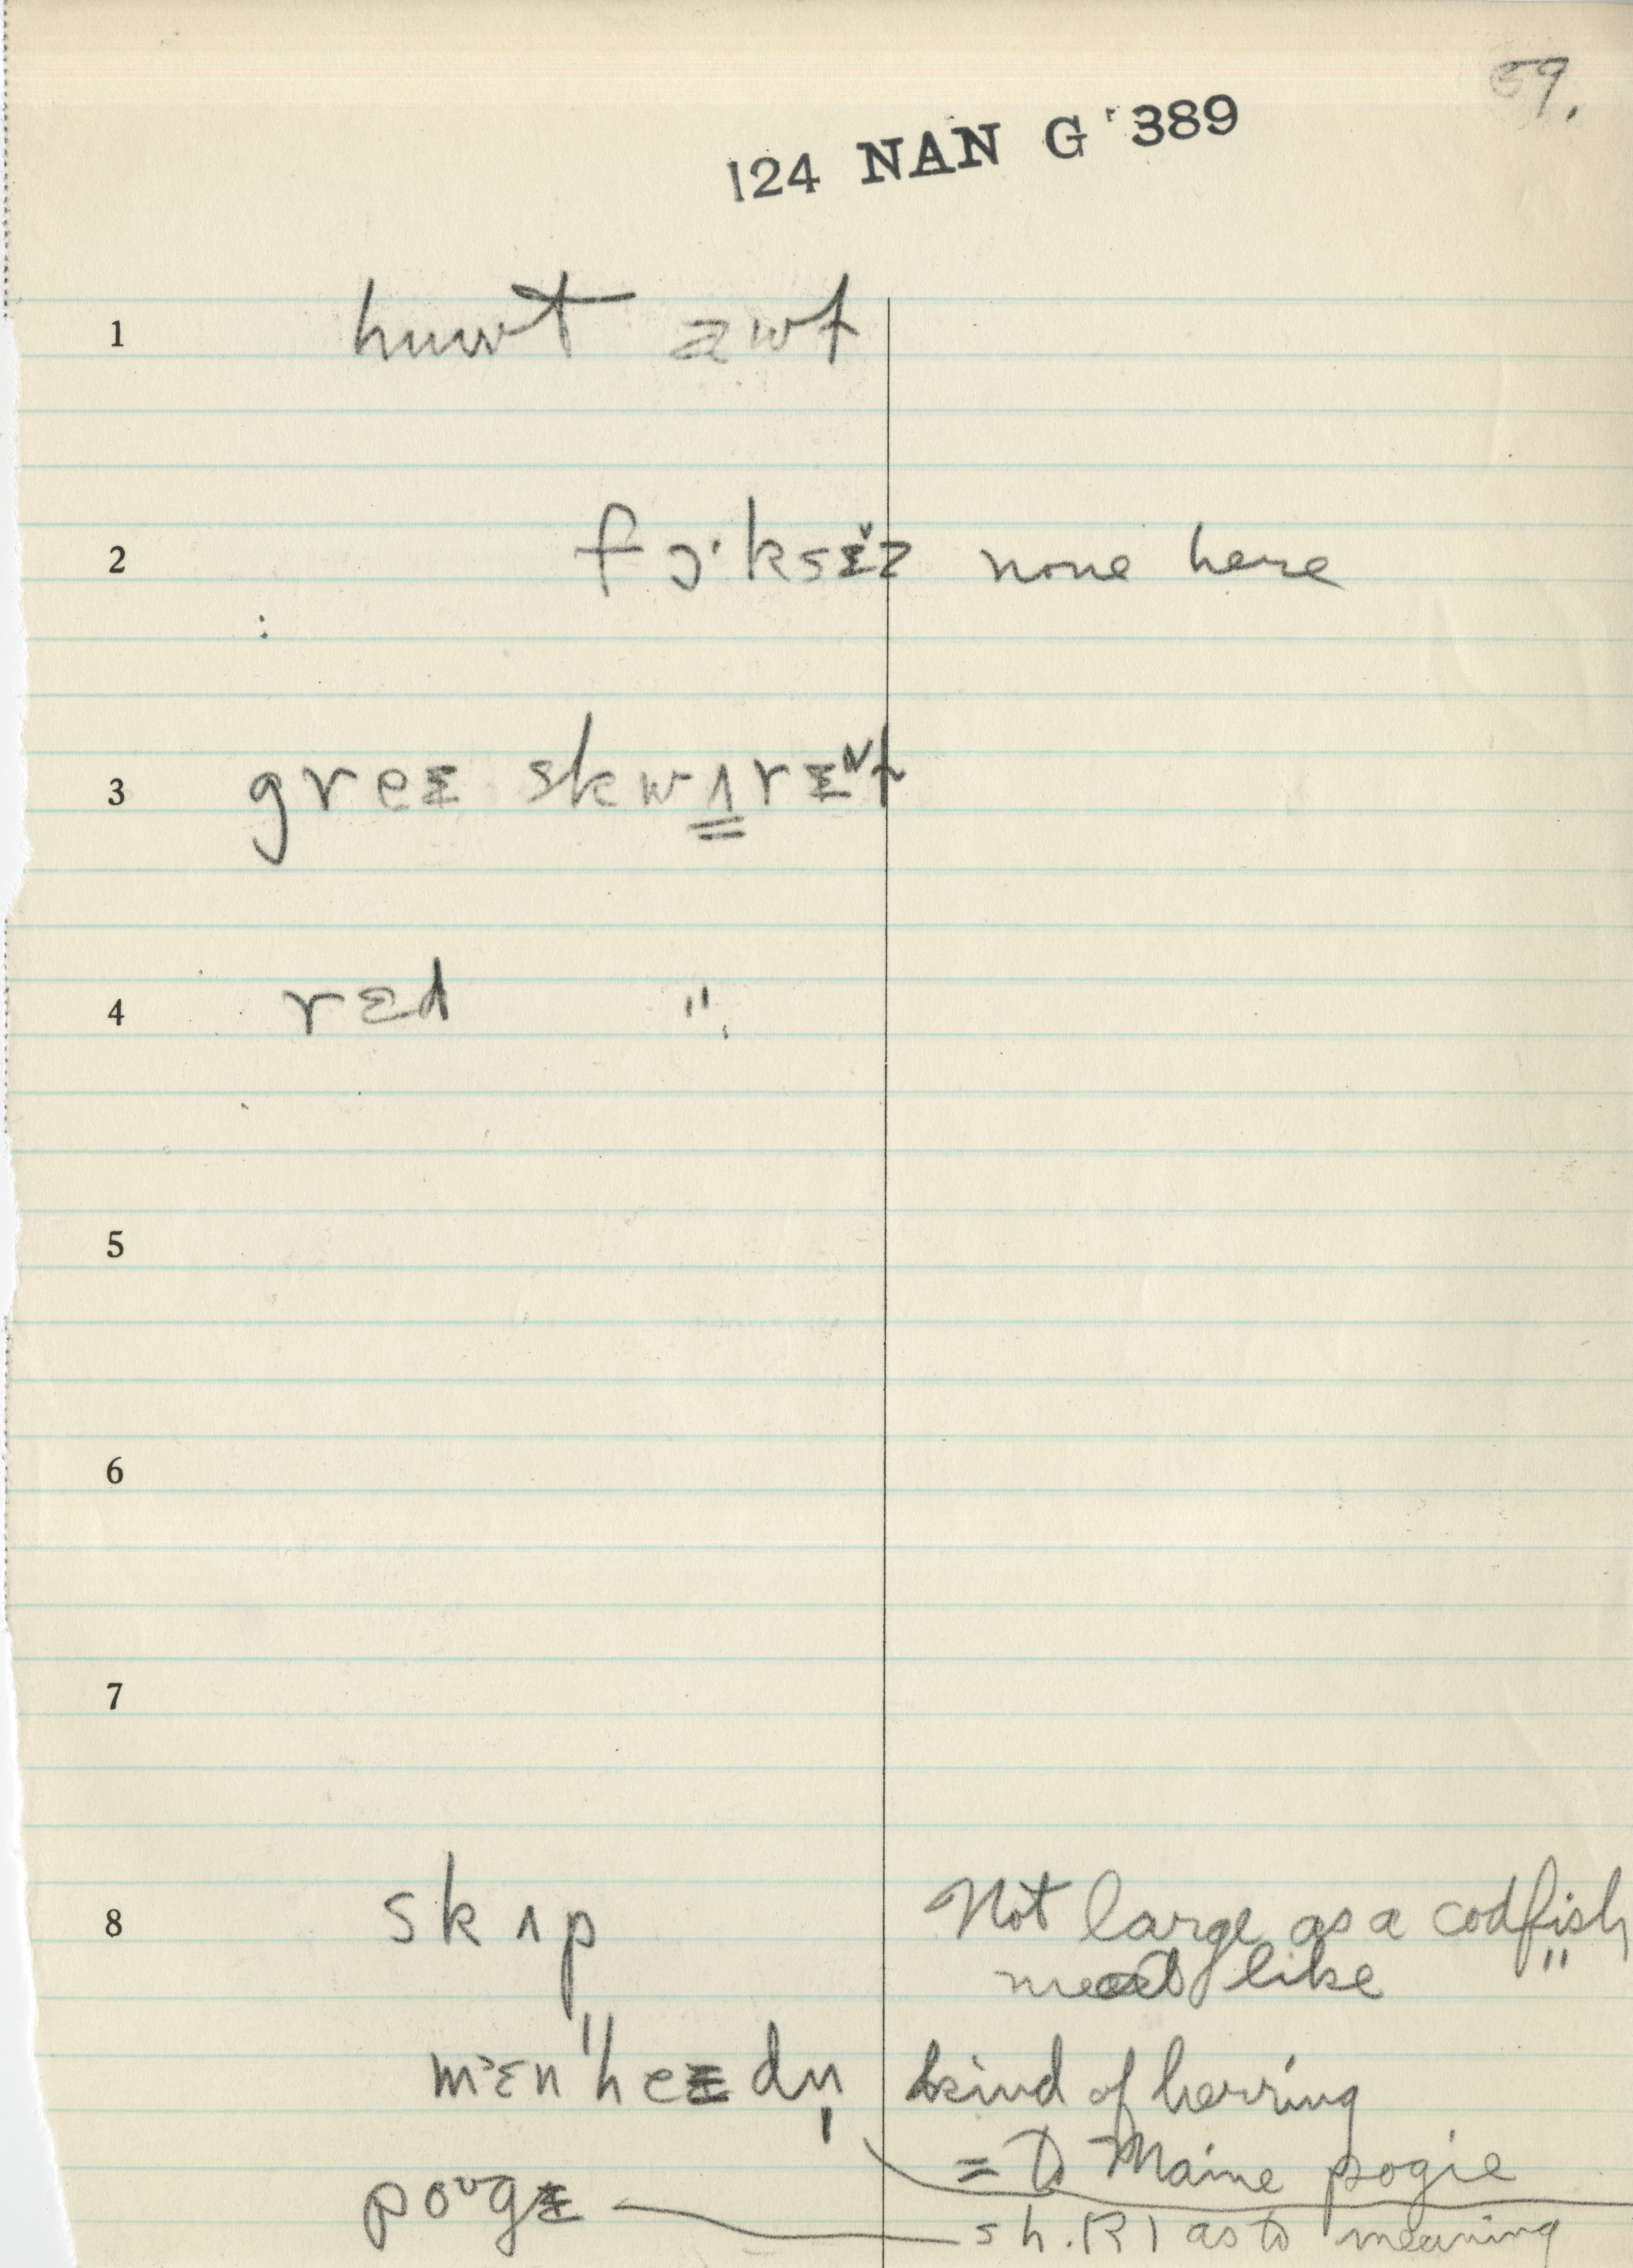 69.
124 NAN G 389
1 huwt awt
2 fɔ·ksɛ̌z none here
3 greɛ skwʌrɛʌt
4 rɛd "
5
6
7
8 skʌp Not large as a codfish
meat like "
mɛn"heɛdn̩ kind of herring
= to Maine pogie
poᴜgɛ sh. (?) as to meaning